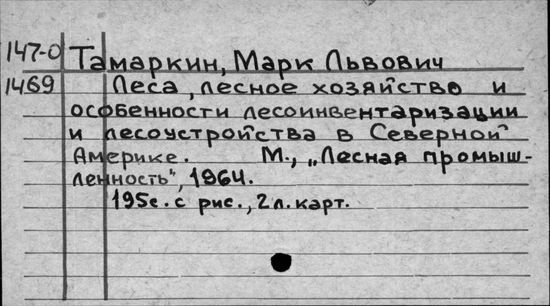 147-0 Тамаркин, Марк Львович
1469 Леса, лесное хозяйство и
особенности лесоинвентаризации
и лесоустройства в Северной
Америке. М., „Лесная промыш-
ленность", 1964.
195с. с рис., 2 л. карт.